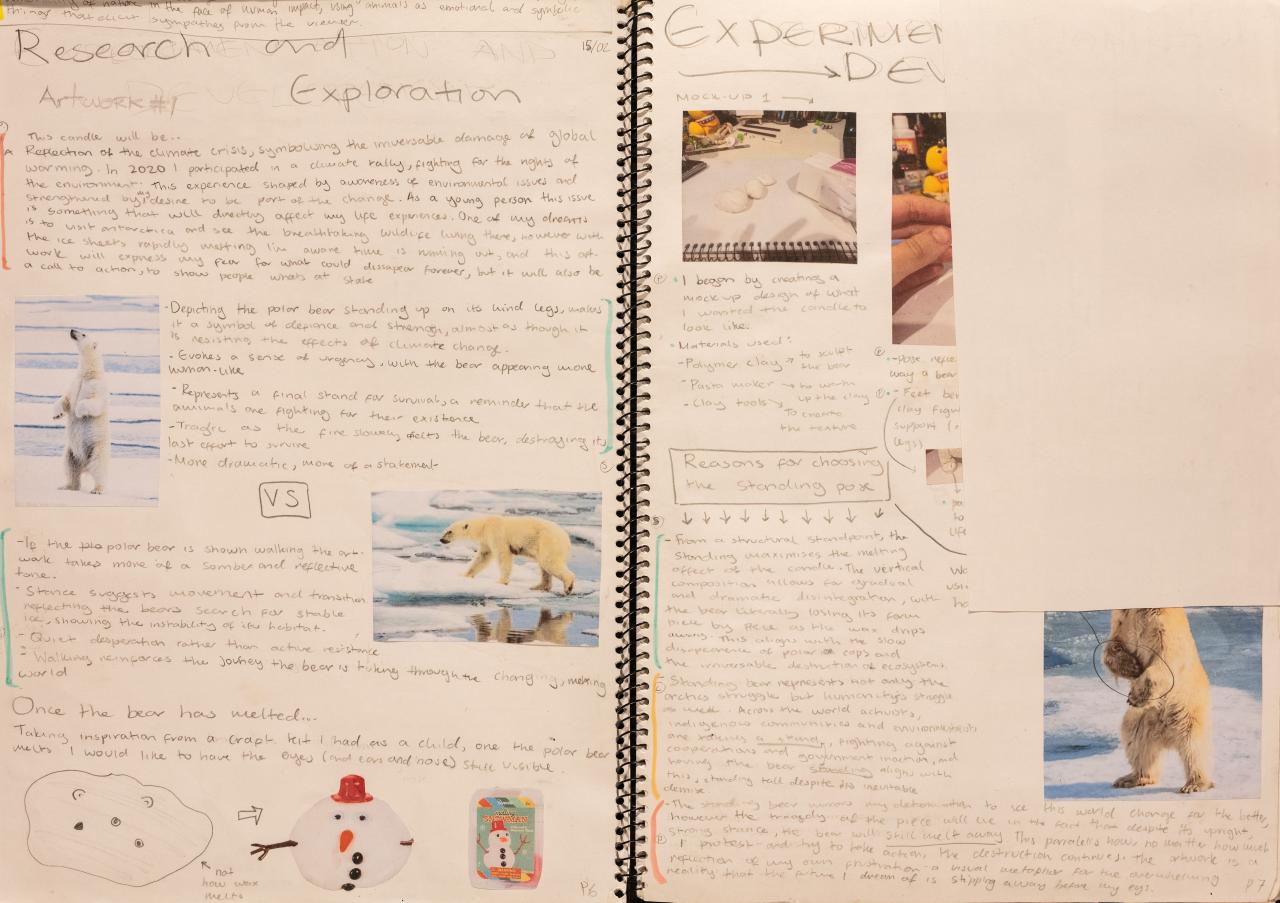 of nature in the face of human impact, using animals as emotional and symbolic
things that elicit sympathes from the viewer.
Research and
15/02
Artwork #1
Exploration
This candle will be..
A Reflection of the climate crisis, symbolising the irreversable damage of global
warming. In 2020 I participated in a climate rally, fighting for the rights of
the environment. This experience shaped by awareness of environmental issues and
strengthened by my desire to be part of the change. As a young person this issue
is something that will directly affect my life experiences. One of my dreams
is to visit antarctica and see the breathtaking wildlife living there, however with
the ice sheets rapidly melting I'm aware time is running out, and this art-
work will express my fear for what could dissapear forever, but it will also be
a call to action, to show people whats at stake
-Depicting the polar bear standing up on its hind legs, makes
it a symbol of defiance and strength, almost as though it
is resisting the effects of climate change.
-Evokes a sense of urgency, with the bear appearing more
human-like
-Represents a final stand for survival, a reminder that the
animals are fighting for their existence
-Tragic as the fire slowly melts the bear, destroying its
last effort to survive
-More dramatic, more of a statement-
VS
-If the polar bear is shown walking the art-
work takes more of a somber and reflective
tone.
-Stance suggests movement and transition
reflecting the bears search for stable
ice, showing the instability of its habitat.
-Quiet desperation rather than active resistance
-Walking reinforces the journey the bear is taking through the changing, melting
world
Once the bear has melted...
Taking inspiration from a craft kit I had as a child, one the polar bear
melts I would like to have the eyes (and ears and nose) still visible.
not
how wax
melts
SNOWMAN
P6
EXPERIMEN
DEV
MOCK-UP 1
• I began by creating a
mock up design of what
I wanted the candle to
look like.
• Materials used:
-Polymer clay → to sculpt
the bear
-Pasta maker → to warm
up the clay
-Clay tools
To create
the texture
-Pose
way a bear
-Feet
clay
support
legs)
Reasons for choosing
the standing pose
-From a structural standpoint, the
standing maximises the melting
effect of the candle. The vertical
composition allows for gradual
and dramatic disintegration, with
the bear literally losing its form
piece by piece as the wax drips
away. This aligns with the slow
disapearence of polar caps and
the irreversable destruction of ecosystems.
-Standing bear represents not only the
arctics struggle but humanitys struggle
as well. Across the world activists,
indigenous communities and environmentalists
are taking a stand, fighting against
cooperations and government inaction, and
having the bear standing aligns with
this, standing tall despite its inevitable
demise.
-The standing bear mirrors my determination to see this world change for the better,
however the tragedy of the piece will lie in the fact that despite its upright,
strong stance, the bear will still melt away. This parallels how no matter how much
I protest and try to take action, the destruction continues. The artwork is a
reflection of my own frustration- a visual metaphor for the overwhelming
reality that the future I dream of is slipping away before my eyes.
P7